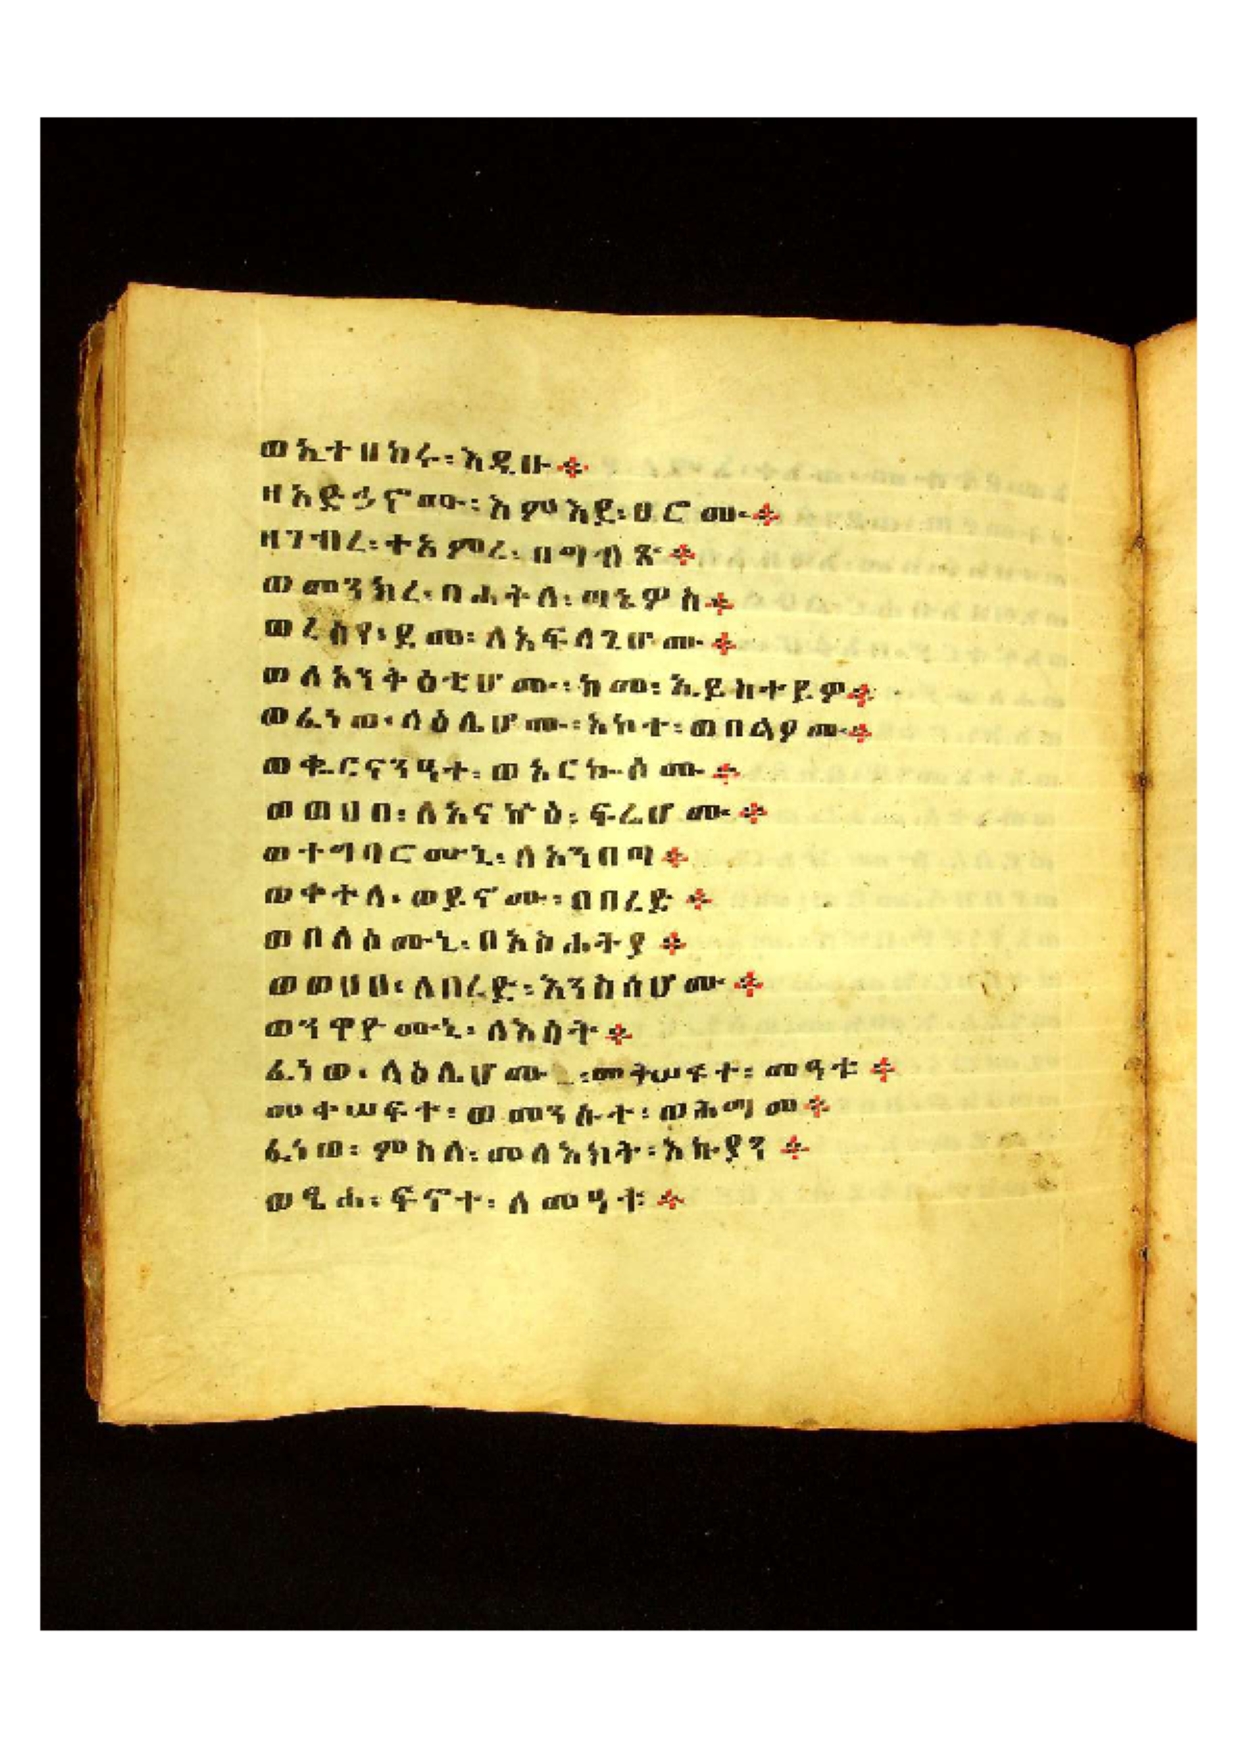 ወኢተዘከሩ፡እዲሁ፨
ዘአድኃኖሙ፡እምእደ፡ፀሮሙ፨
ዘገብረ፡ተአምረ፡በግብጽ፨
ወመንክረ፡በሐትለ፡ጣኔዎስ፨
ወረሰየ፡ደመ፡ለአፍላጊሆሙ፨
ወለአንቅዕቲሆሙ፡ከመ፡ኢይስተዩዎ፨
ወፈነወ፡ላዕሌሆሙ፡አኮተ፡ወበልዖሙ፨
ወቈርናንዓተ፡ወአርኰሶሙ፨
ወወሀበ፡ለአናኵዕ፡ፍሬሆሙ፨
ወተግባሮሙኒ፡ለአንበጣ፨
ወቀተለ፡ወይኖሙ፡በበረድ፨
ወበለሶሙኒ፡በአስሐትያ፨
ወወሀበ፡ለበረድ፡እንስሳሆሙ፨
ወንዋዮሙኒ፡ለእሳት፨
ፈነወ፡ላዕሌሆሙ፡መቅሠፍተ፡መዓቱ፨
መቀሠፍተ፡ወመንሱተ፡ወሕማመ፨
ፈነወ፡ምስለ፡መላእክት፡እኩያን፨
ወፄሐ፡ፍኖተ፡ለመዓቱ፨